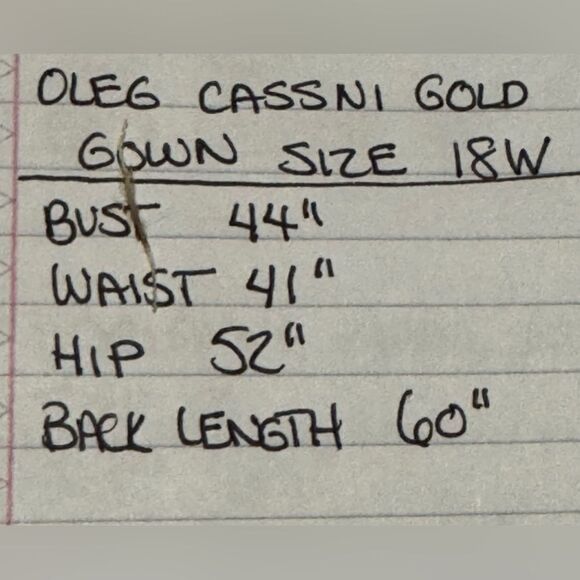 OLEG CASSNI GOLD
GOWN SIZE 18W
BUST 44"
WAIST 41"
HIP 52"
BACK LENGTH 60"